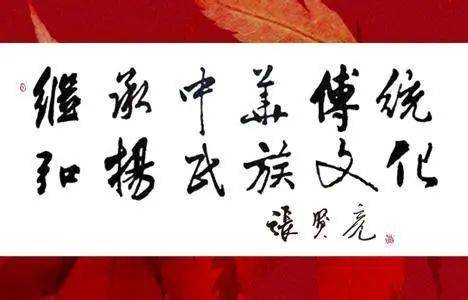 继承中華傳統
弘揚民族文化
張贤亮